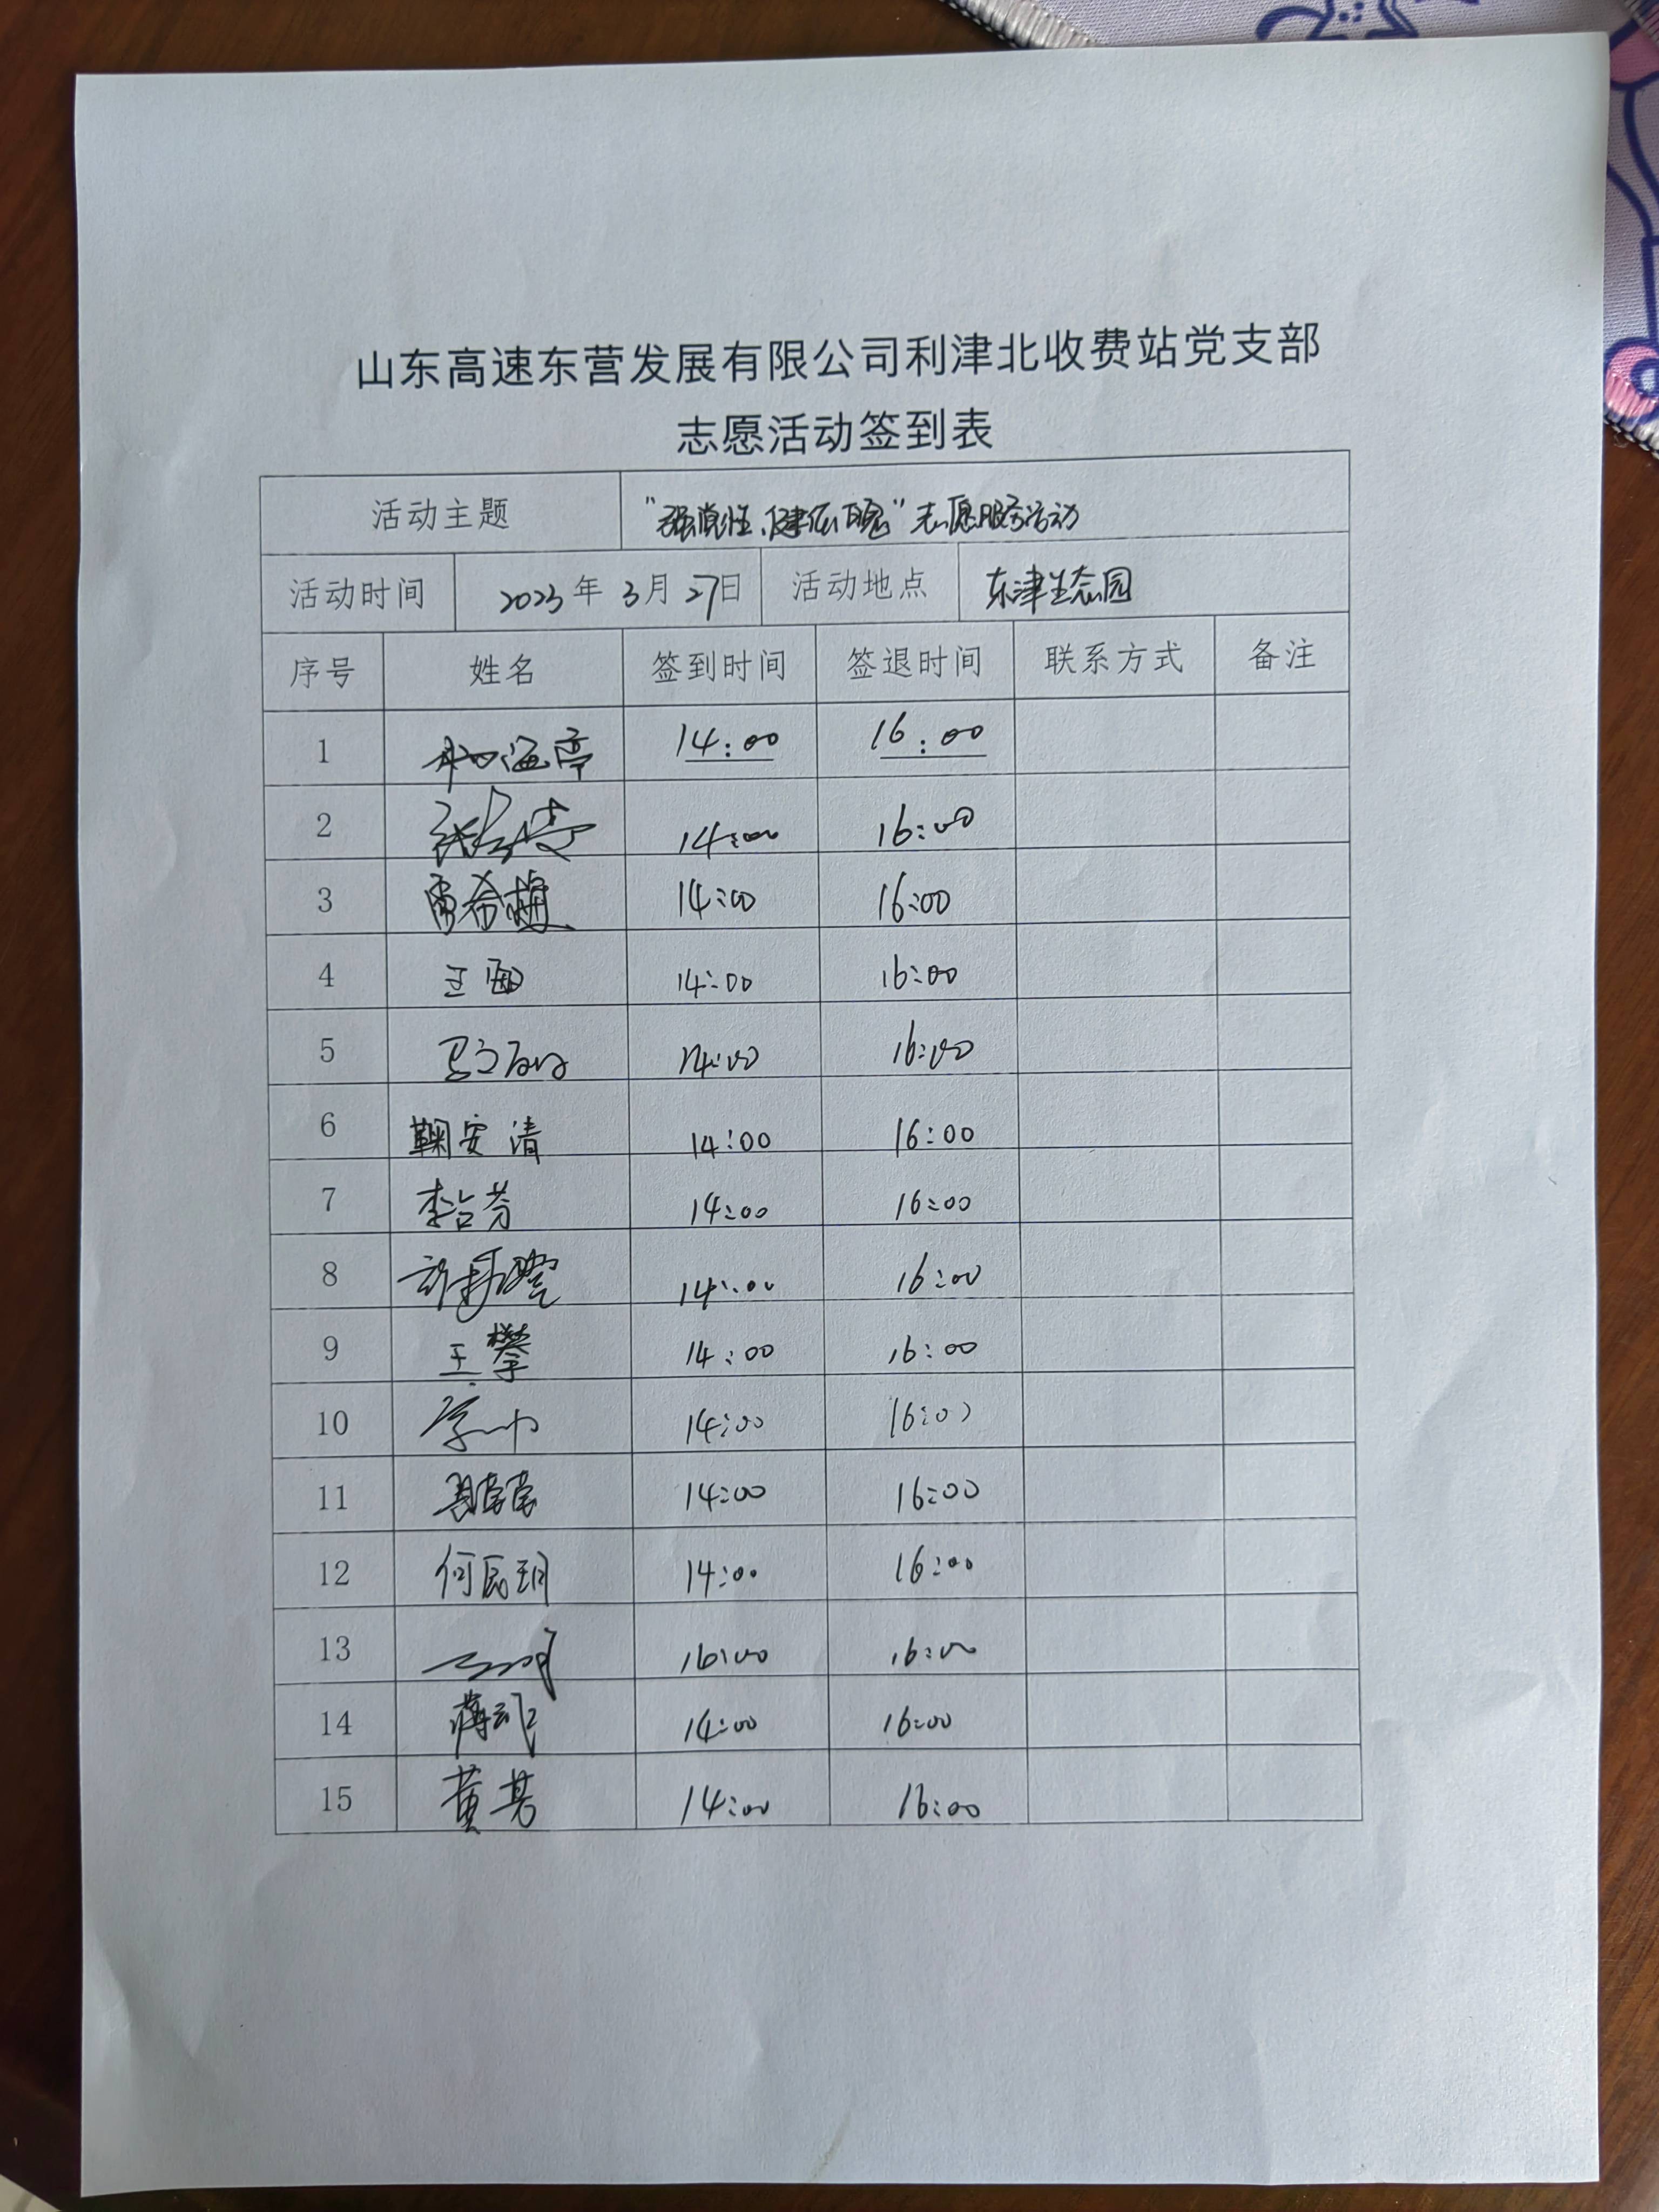 山东高速东营发展有限公司利津北收费站党支部
志愿活动签到表
活动主题 "强党性、健体魄"志愿服务活动
活动时间 2023年3月27日 活动地点 东津生态园
序号 姓名 签到时间 签退时间 联系方式 备注
1 海亭 14:00 16:00
2 张 14:00 16:00
3 希梅 14:00 16:00
4 王 14:00 16:00
5 14:00 16:00
6 鞠安清 14:00 16:00
7 李台芬 14:00 16:00
8 许 14:00 16:00
9 王攀 14:00 16:00
10 李 14:00 16:00
11 14:00 16:00
12 何民玥 14:00 16:00
13 16:00 16:00
14 蒋 14:00 16:00
15 黄 14:00 16:00